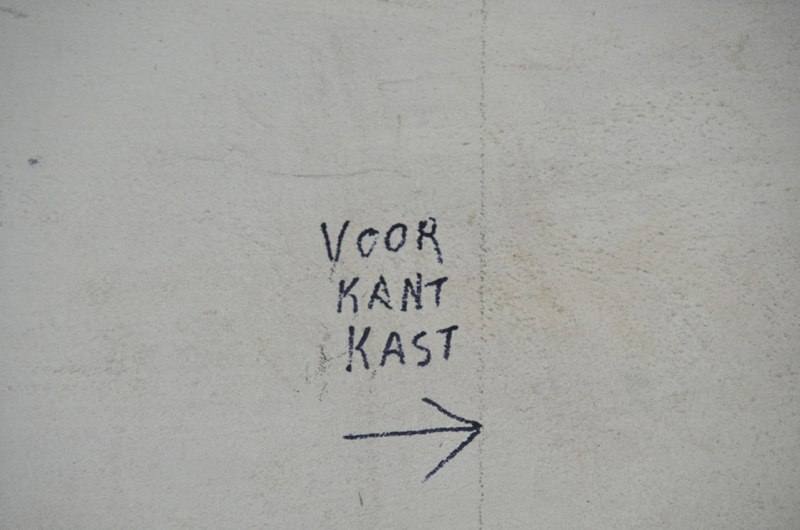 VOOR
KANT
KAST